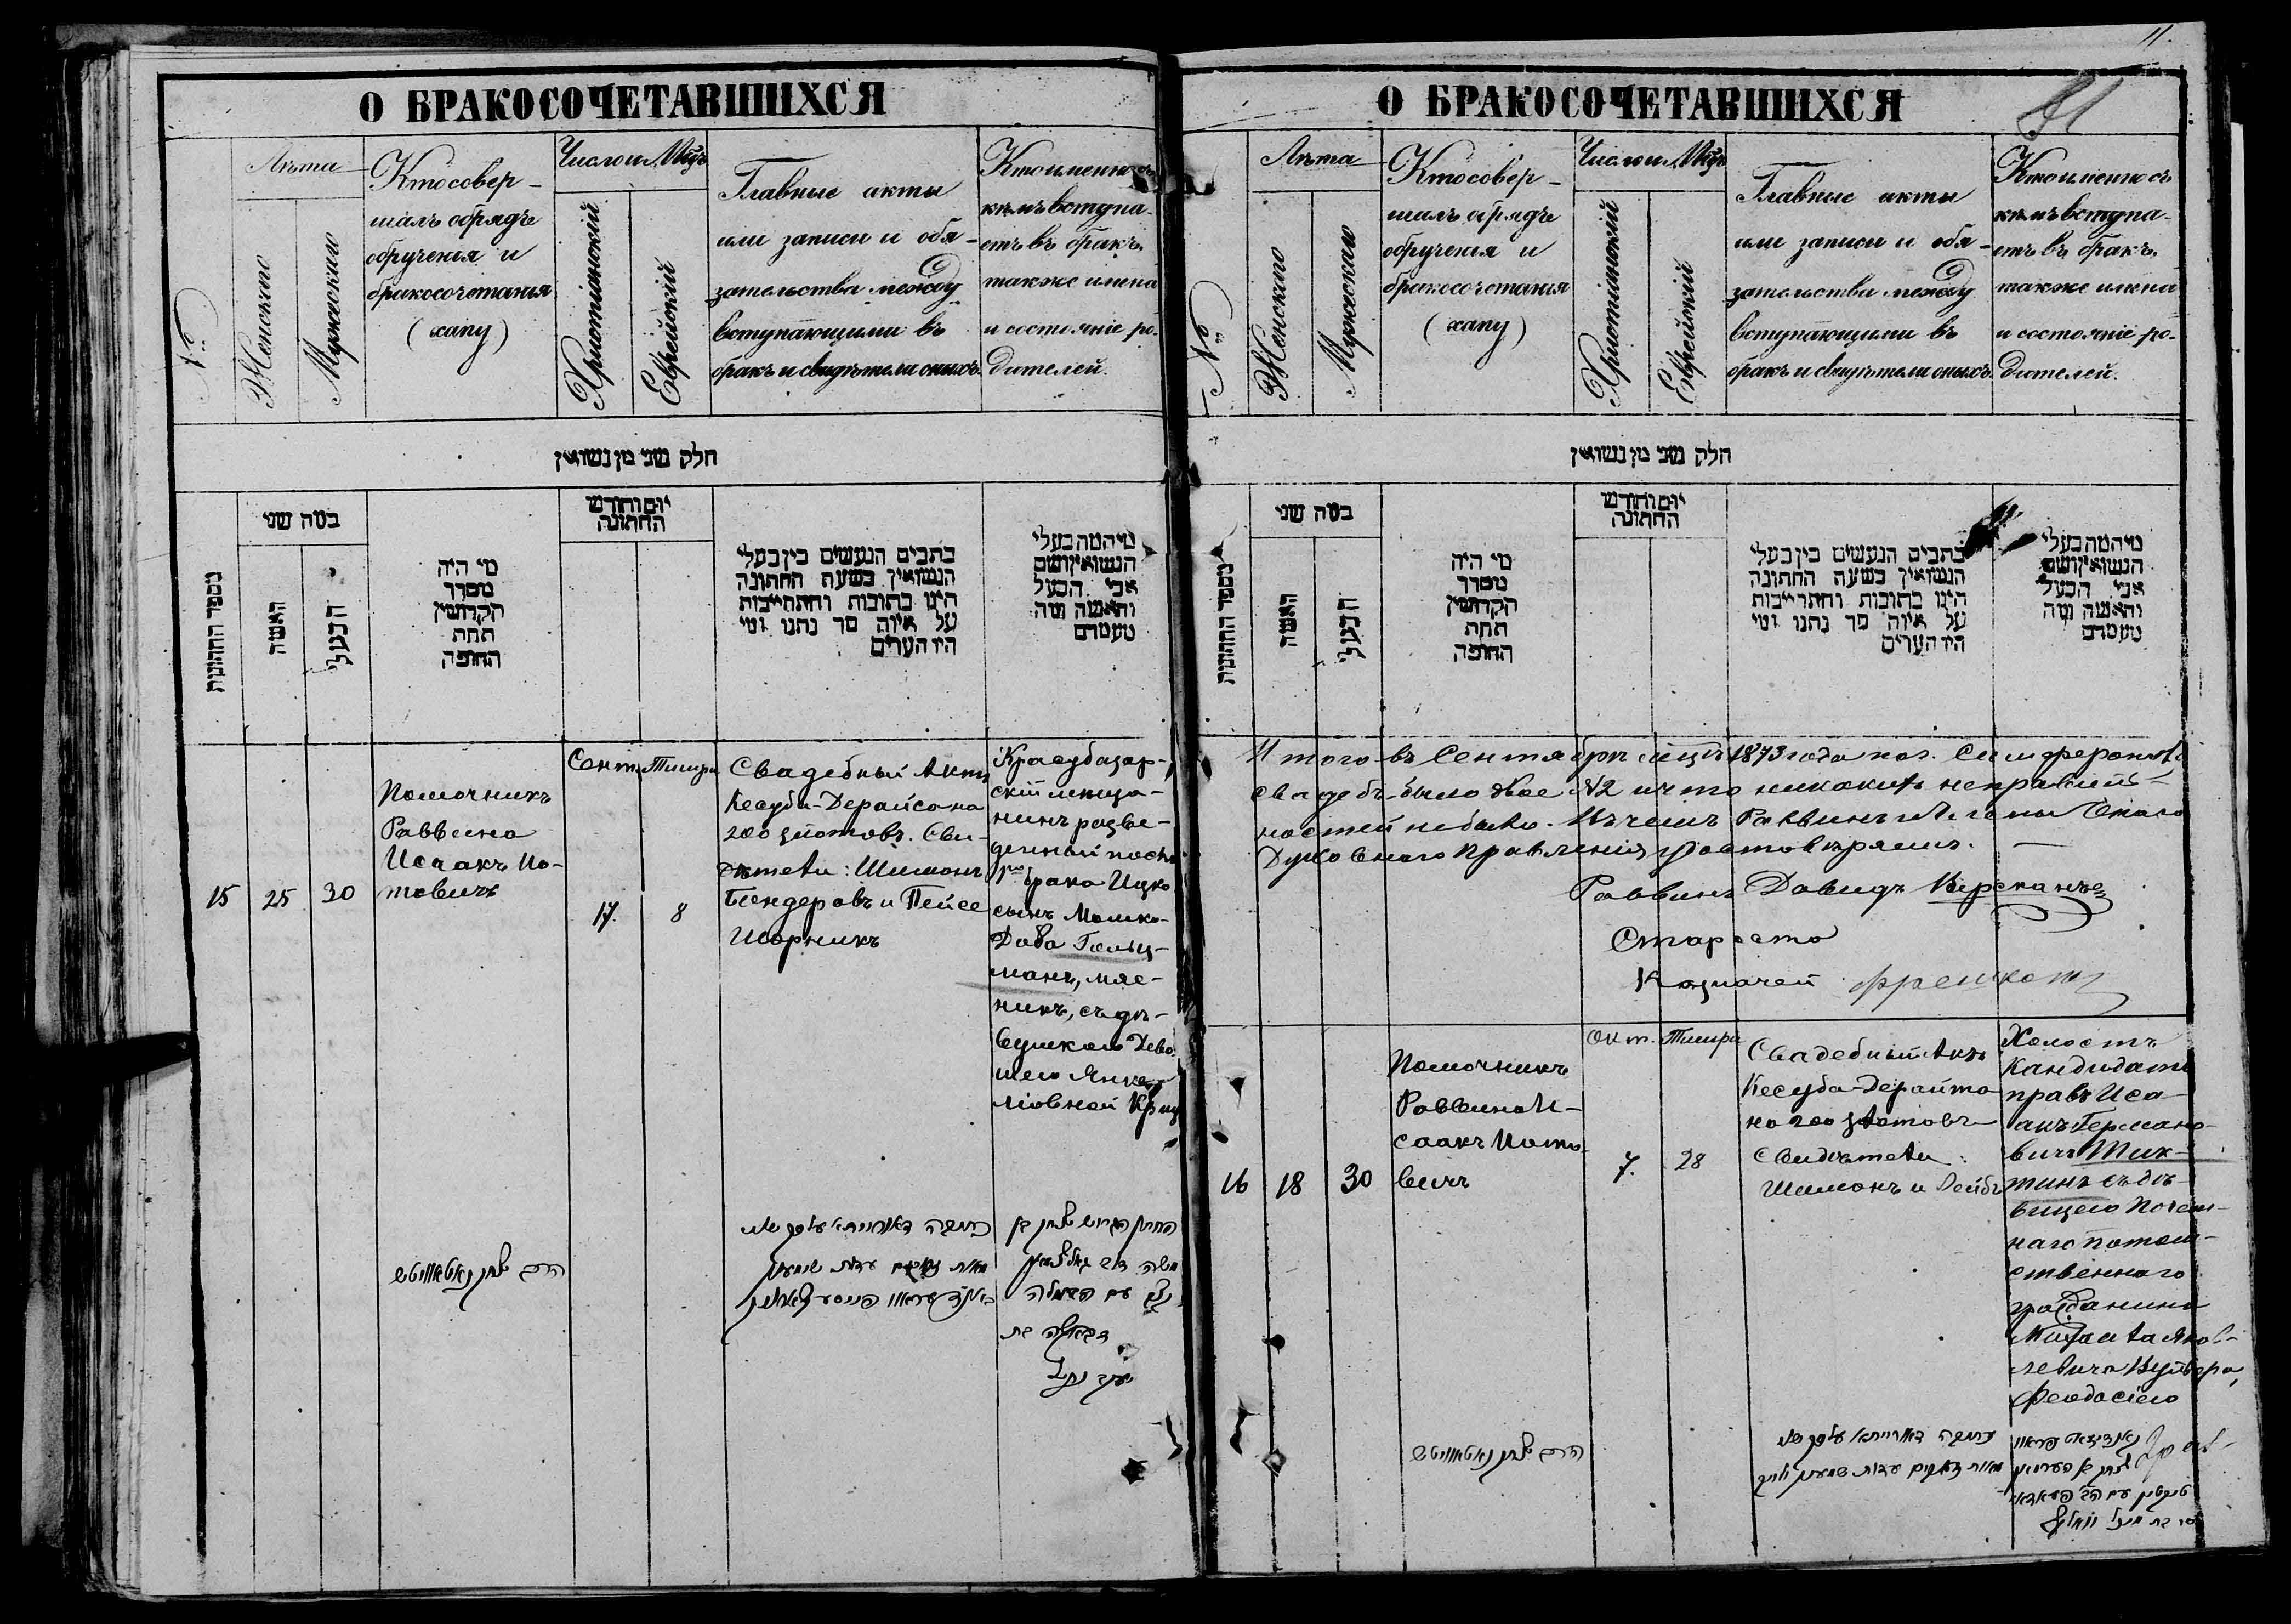 11.
О БРАКОСОЧЕТАВШИХСЯ
№
Лѣта
Женскаго
Мужескаго
Кто совер-
шалъ обрядъ
обрученія и
бракосочетанія
(хапу)
Число и Мѣсяцъ
Христіанскій
Еврейскій
Главные акты
или записи и обя-
зательства между
вступающими въ
бракъ и свидѣтели оныхъ.
Кто именно съ
кѣмъ вступа-
етъ въ бракъ.
также имена
и состояніе ро-
дителей.
חלק שני מן נשואין
מספר החתונות
במה שני
האשה
הבעל
מי היה
מסדר
הקדושין
תחת
החופה
יום וחודש
החתונה
כתבים הנעשים בין בעלי
הנשואין בשעת החתונה
היינו כתובות והתחייבות
על איזה סך נתנו ומי
היו העדים
מי המה בעלי
הנשואין ושם
אבי הבעל
והאשה ומה
מעמדם
15
25
30
Помочникъ
Раввина
Исаакъ Но-
товичъ
Сент.
17.
Тишри
8
Свадебный Актъ
Кесуба-Дерайса на
200 злотовъ. Сви-
дѣтели: Шимонъ
Бендеровъ и Пейсе
Шорникъ
Карасубазар-
скій мѣща-
нинъ разве-
денный послѣ
1го брака Ицко
сынъ Мошко-
Дова Гольц-
манъ, мяс-
никъ, съ дѣ-
вушкою Дево-
шею Янке-
ліовной
הרב יצחק נאטאוויטש
כתובה דאורייתא על סך של
מאות זהובים עדות שמעון
משה דוב
עם הבתולה
О БРАКОСОЧЕТАВШИХСЯ
№
Лѣта
Женскаго
Мужескаго
Кто совер-
шалъ обрядъ
обрученія и
бракосочетанія
(хапу)
Число и Мѣсяцъ
Христіанскій
Еврейскій
Главные акты
или записи и обя-
зательства между
вступающими въ
бракъ и свидѣтели оныхъ.
Кто именно съ
кѣмъ вступа-
етъ въ бракъ.
также имена
и состояніе ро-
дителей.
חלק שני מן נשואין
מספר החתונות
במה שני
האשה
הבעל
מי היה
מסדר
הקדושין
תחת
החופה
יום וחודש
החתונה
כתבים הנעשים בין בעלי
הנשואין בשעת החתונה
היינו כתובות והתחייבות
על איזה סך נתנו ומי
היו העדים
מי המה בעלי
הנשואין ושם
אבי הבעל
והאשה ומה
מעמדם
Итого въ Сентябрѣ мцѣ 1873 года по г. Симферополю
свадебъ было двое №2 и что никакихъ неправиль-
ностей не было. Въ чемъ Раввинъ и Члены Онаго
Духовнаго Правленія удостовѣряемъ.
Раввинъ Давидъ
Староста
Казначей
16
18
30
Помочникъ
Раввина И-
саакъ Ното-
вичъ
Окт.
7.
Тишри
28
Свадебный Актъ
Кесуба-Дерайта
на 200 злотовъ
Свидѣтели:
Шимонъ и Лейбъ
Холостъ
Кандидатъ
правъ Иса-
акъ Германо-
вичъ Тик-
тинъ съ дѣ-
вицею Почет-
наго потом-
ственнаго
гражданина
Михаила Яков-
левича
Феодосіею
הרב יצחק נאטאוויטש
כתובה דאורייתא על סך של
מאות זהובים עדות שמעון